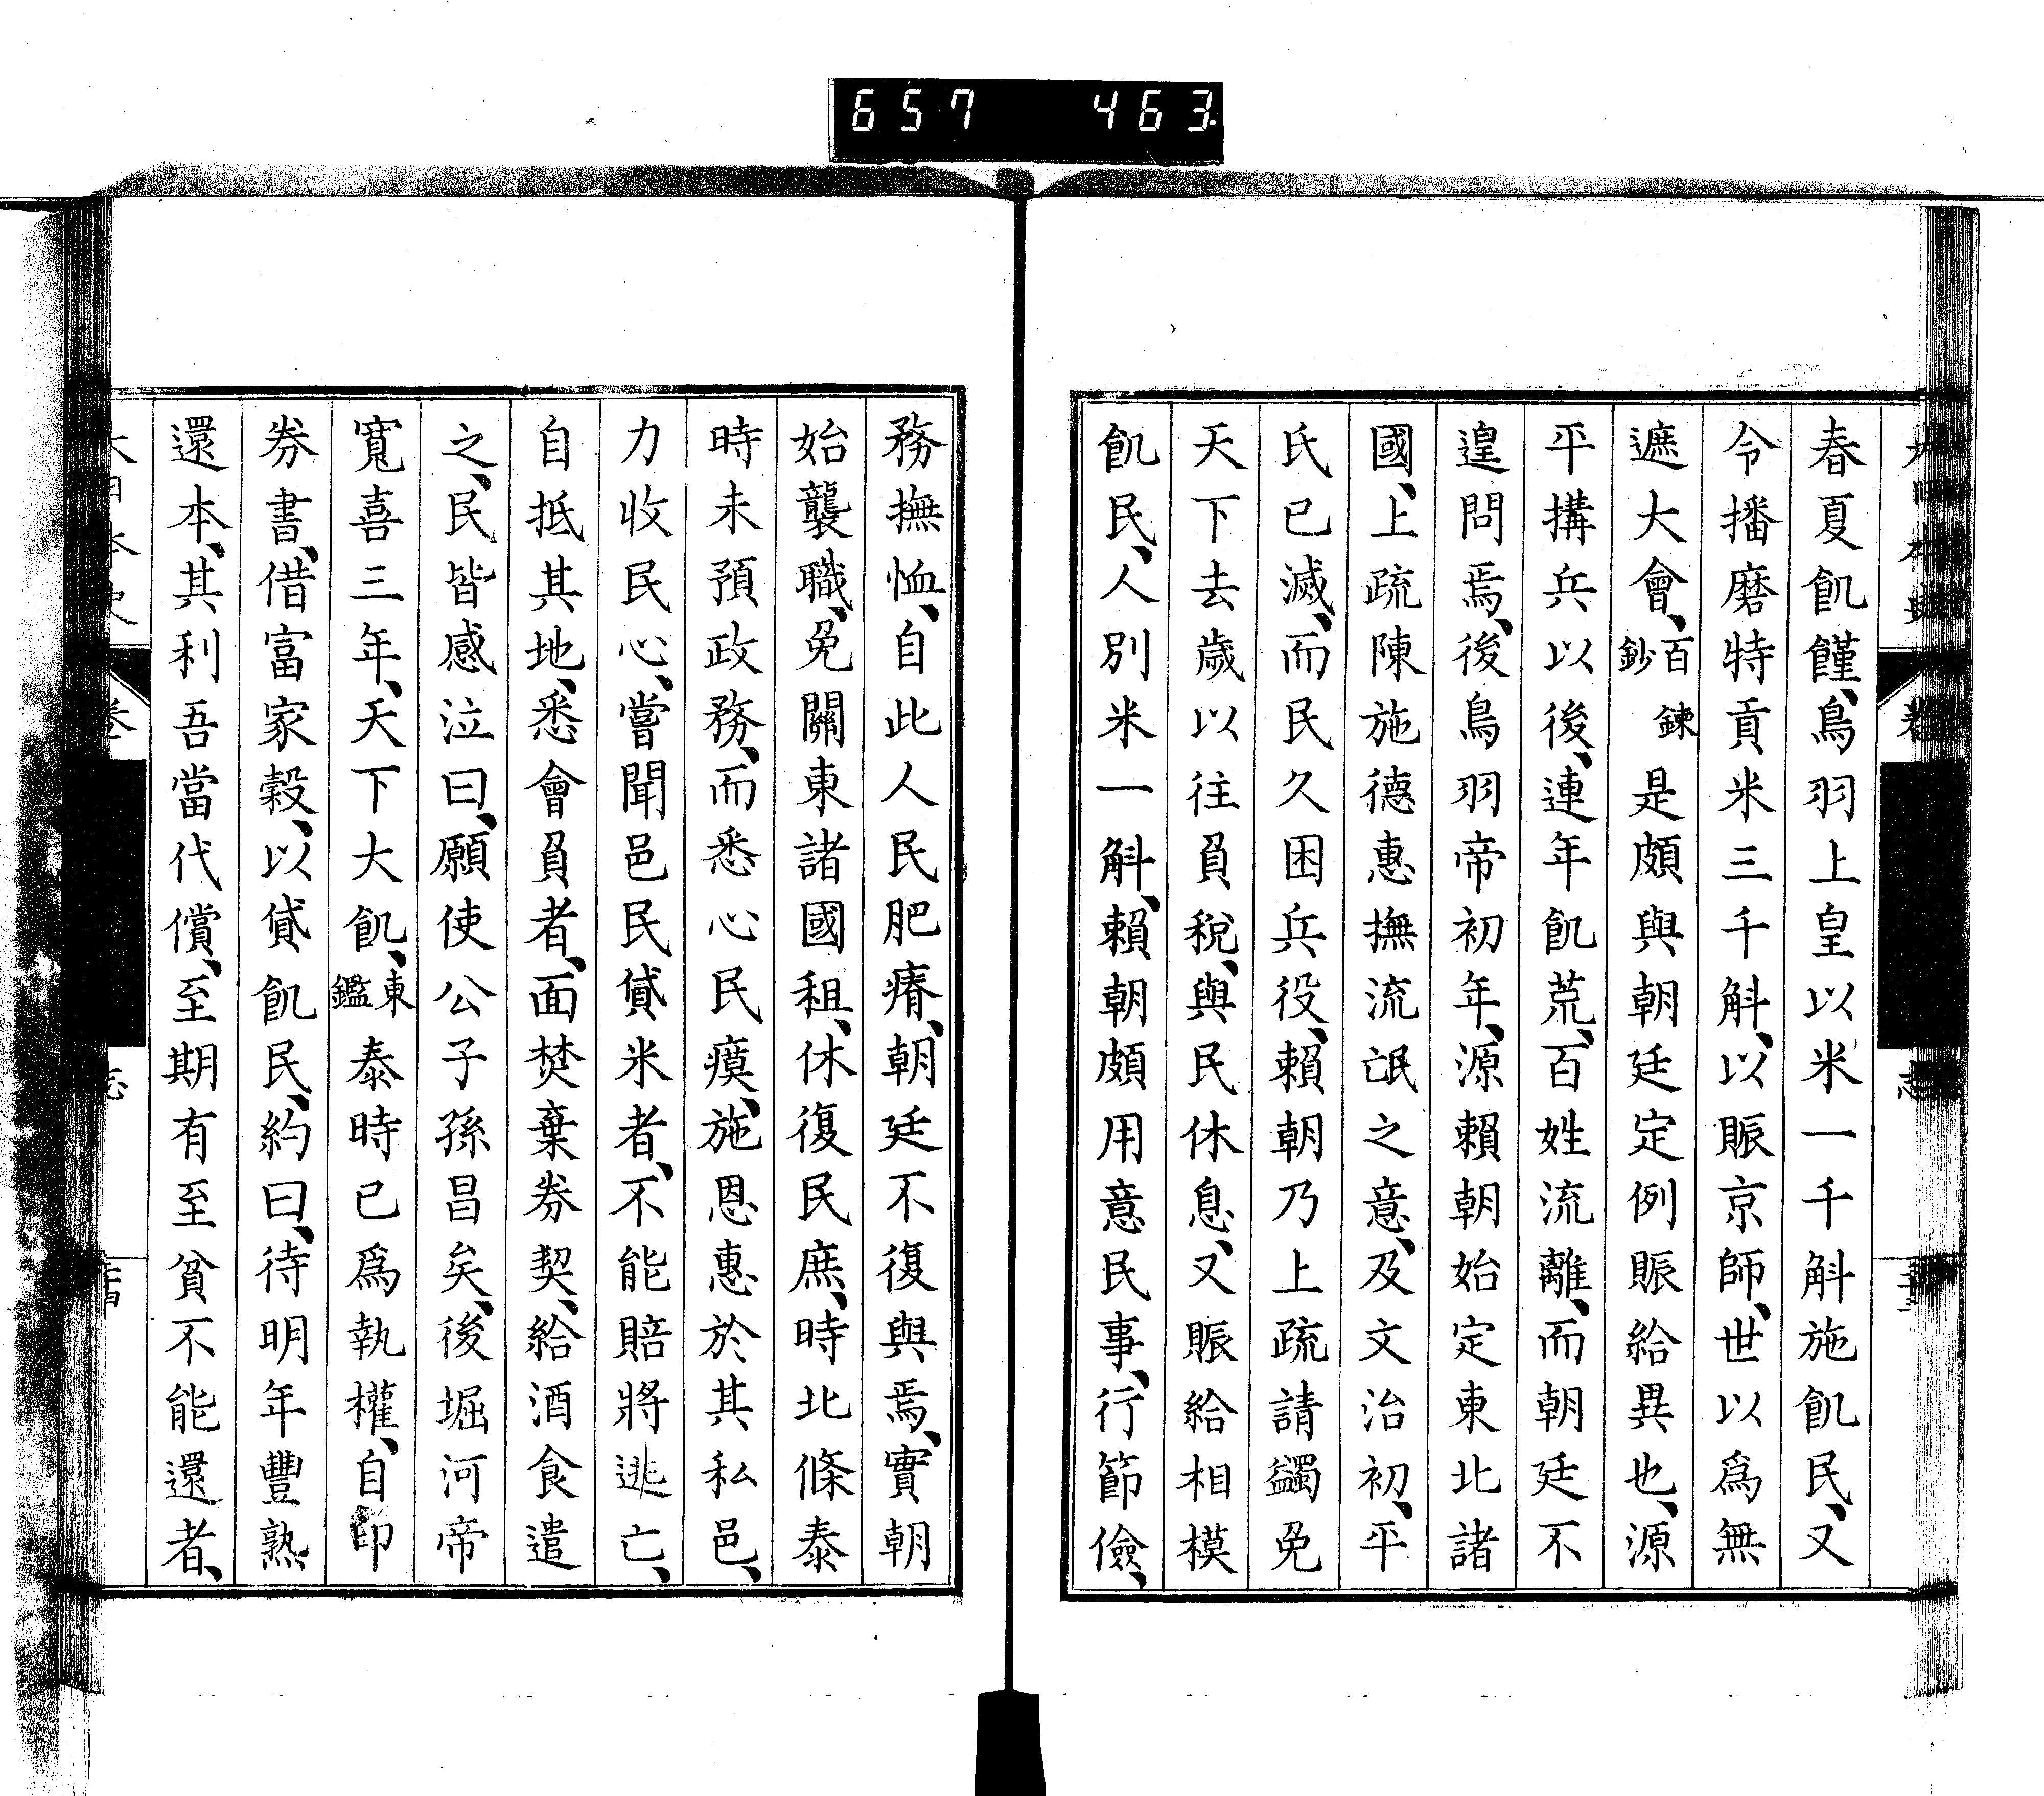 657 463
春夏飢饉、鳥羽上皇以米一千斛施飢民、又
令播磨特貢米三千斛、以賑京師、世以爲無
遮大會、百鍊鈔是頗與朝廷定例賑給異也、源
平搆兵以後、連年飢荒、百姓流離、而朝廷不
遑問焉、後鳥羽帝初年、源賴朝始定東北諸
國、上疏陳施德惠撫流氓之意、及文治初、平
氏已滅、而民久困兵役、賴朝乃上疏請蠲免
天下去歲以往負稅、與民休息、又賑給相模
飢民、人別米一斛、賴朝頗用意民事、行節儉、
務撫恤、自此人民肥瘠、朝廷不復與焉、實朝
始襲職、免關東諸國租、休復民庶、時北條泰
時未預政務、而悉心民瘼、施恩惠於其私邑、
力收民心、嘗聞邑民貸米者、不能賠將逃亡、
自抵其地、悉會負者、面焚棄券契、給酒食遣
之、民皆感泣曰、願使公子孫昌矣、後堀河帝
寬喜三年、天下大飢、東鑑泰時已爲執權、自印
券書、借富家穀、以貸飢民、約曰、待明年豐熟
還本、其利吾當代償、至期有至貧不能還者、